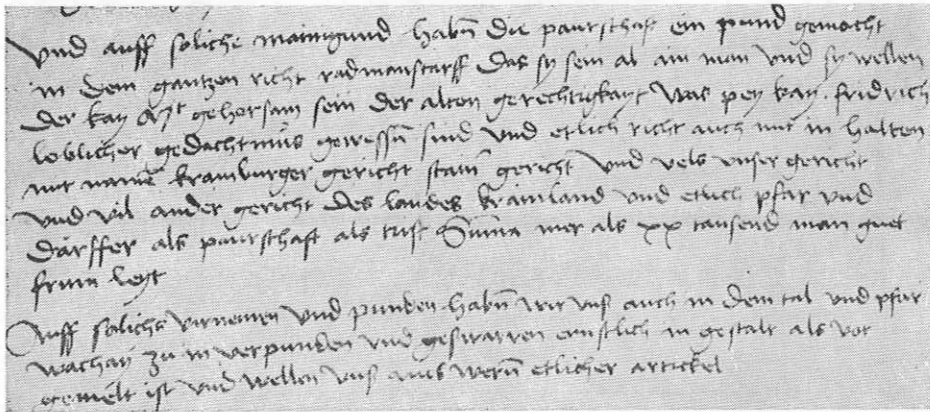 Vnd auff soliche mainigund habn̄ die paurschaft ein pund gemacht
in dem gantzen richt radmanstarff das sy sein al ain man vnd sy wellen
der kay Mt gehorsam sein der alten gerechtigkayt was pey kay. fridrich
loblicher gedachtnus gewessn̄ sind vnd etlich richt auch mit in halten
mit namen̄ krainburger gericht stain̄ gericht vnd vels vnser gericht
vnd vil ander gericht des landes krainland vnd etlich pfar vnd
dărffer als paurschaft als trist Sum̄a mer als xx tausend man guet
frum leyt
Auff solichs virnemen vnd punden habn̄ wir vnß auch in dem tal vnd pfar
wachain zu in verpunden vnd geswarren ernstlich in gestalt als vor
gemelt ist vnd wellen vnß auß wern̄ etlicher artickel